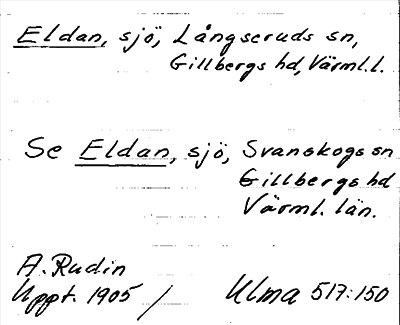 Eldan, sjö, Långseruds sn,
Gillbergs hd, Värml. l.
Se Eldan, sjö, Svanskogs sn
Gillbergs hd
Värml. län.
A. Rudin
Uppt. 1905 / Ulma 517:150